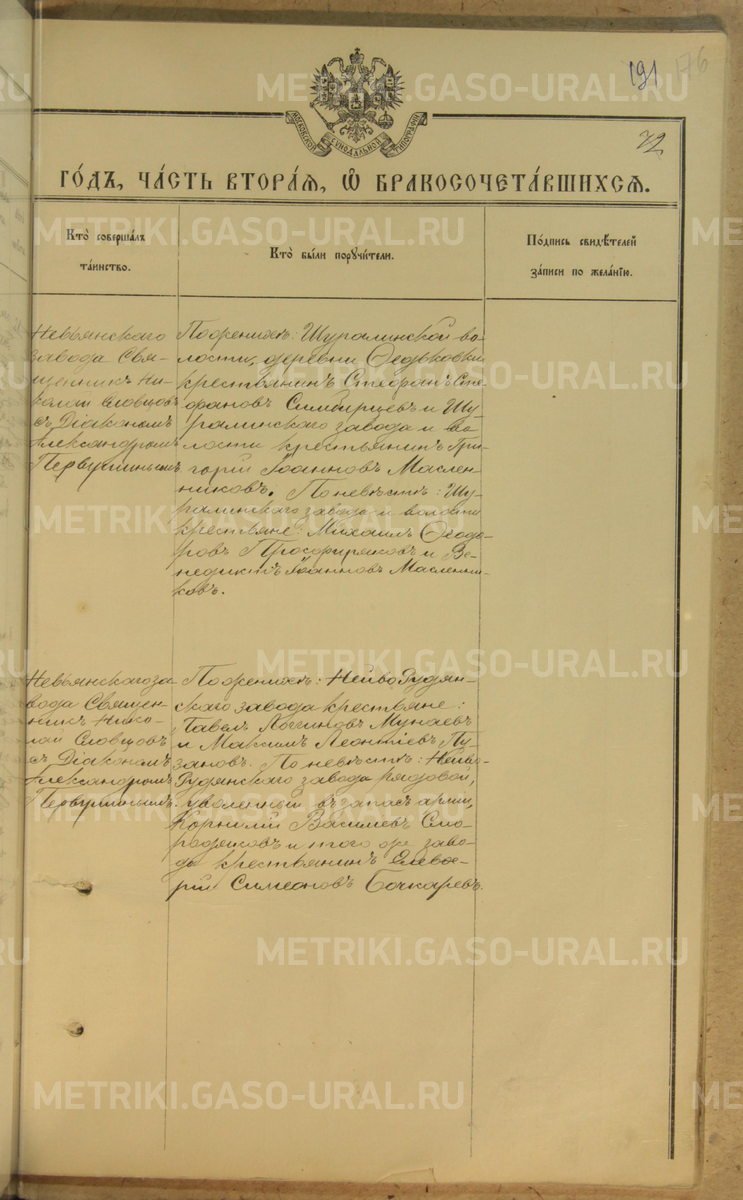 191
176
72
МОСКОВСКОЙ СѴНОДАЛЬНОЙ ТИПОГРАФІИ
ГО́ДЪ, ЧА́СТЬ ВТОРА́Я, Ѿ БРАКОСОЧЕТА́ВШИХСЯ.
Кто̀ соверша́лъ
та́инство.
Кто̀ бы́ли поручи́тели.
По́дпись свидѣ́телей
за́писи по жела́нію.
Невьянскаго
завода Свя-
щенникъ Ни-
колай Словцовъ
съ Діакономъ
Александромъ
Первушинымъ
По женихѣ: Шуралинской во-
лости, деревни Ѳедьковки
крестьянинъ Стефанъ Сте-
фановъ Симбирцевъ и Шу-
ралинскаго завода и во-
лости крестьянинъ Гри-
горій Іоанновъ Маслен-
никовъ. По невѣстѣ: Шу-
ралинскаго завода и волости
крестьяне: Михаилъ Ѳеодо-
ровъ Просфиряковъ и Ве-
недиктъ Іоанновъ Маслени-
ковъ.
Невьянскаго за
вода Священ-
никъ Нико-
лай Словцовъ
съ Діакономъ
Александромъ
Первушинымъ
По женихѣ: Нейво Рудян-
скаго завода крестьяне:
Павелъ Логгиновъ Мунаевъ
и Максимъ Леонтіевъ Пу-
зановъ. По невѣстѣ: Нейво-
Рудянскаго завода рядовой,
уволенный въ запасъ арміи,
Корнилій Василіевъ Смо-
родяковъ и того же заво-
да крестьянинъ Елевѳе-
рій Симеоновъ Бочкаревъ.
METRIKI.GASO-URAL.RU